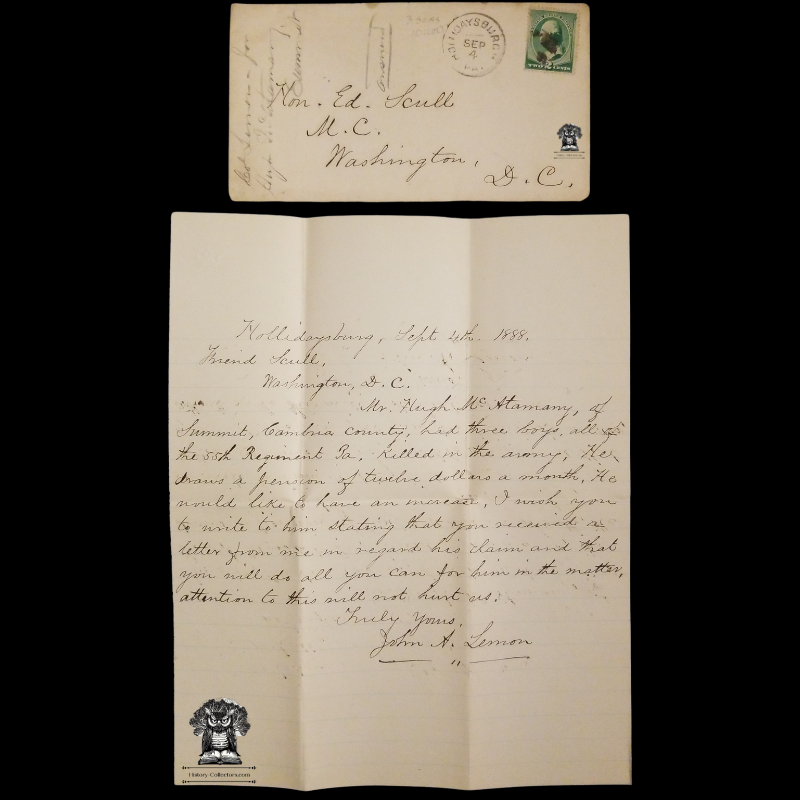 HOLLIDAYSBURG
SEP
4
PA.
TWO 2 CENTS
answered
Hon. Ed. Scull
M. C.
Washington,
D. C.
Hollidaysburg, Sept 4th. 1888.
Friend Scull,
Washington, D. C.
Mr. Hugh McAtamany, of
Summit, Cambria county, had three boys, all of
the 55th Regiment Pa, killed in the army, He
draws a pension of twelve dollars a month, He
would like to have an increase, I wish you
to write to him stating that you received a
letter from me in regard his claim and that
you will do all you can for him in the matter,
attention to this will not hurt us.
Truly Yours,
John A. Lemon
History-Collectors.com